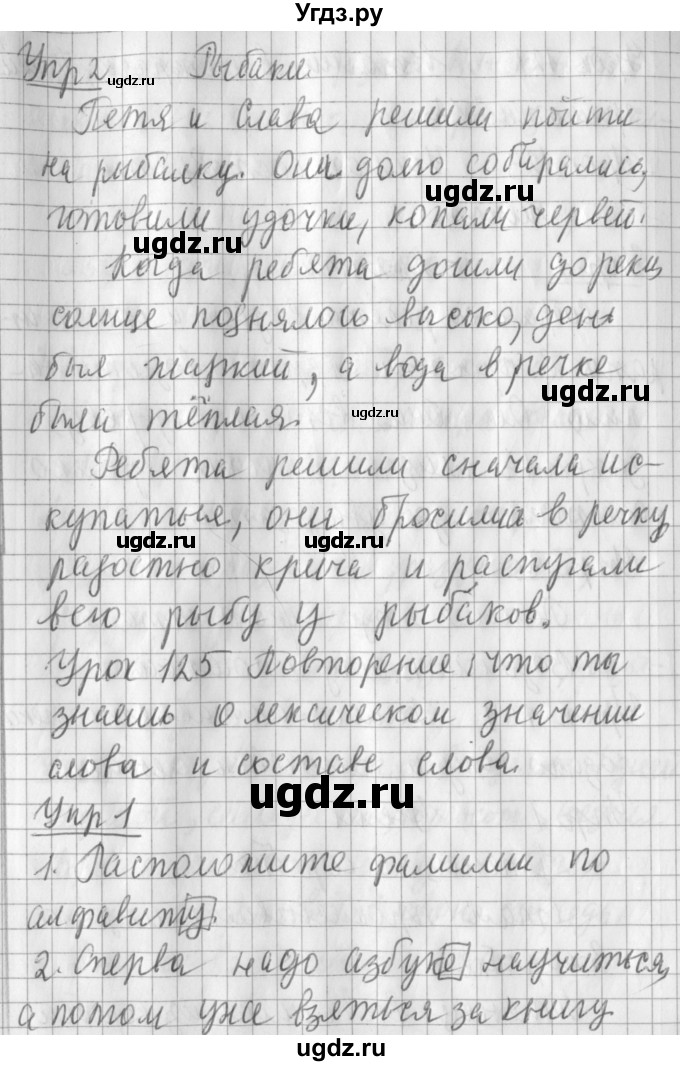 Угдз.ру
Упр 2 Рыбаки
ugdz.ru
Петя и Слава решили пойти
на рыбалку. Они долго собирались,
ugdz.ru
готовили удочки, копали червей.
ugdz.ru
Когда ребята дошли до реки,
солнце поднялось высоко, день
был жаркий, а вода в речке
ugdz.ru
была тёплая.
ugdz.ru
Ребята решили сначала ис-
купаться, они бросились в речку
ugdz.ru ugdz.ru
радостно крича и распугали
всю рыбу у рыбаков.
Урок 125 Повторение, что ты
знаешь о лексическом значении
слова и составе слова.
ugdz.ru
Упр 1
1. Расположите фамилии по
алфавиту.
2. Сперва надо азбуке научиться,
а потом уже взяться за книгу
ugdz.ru